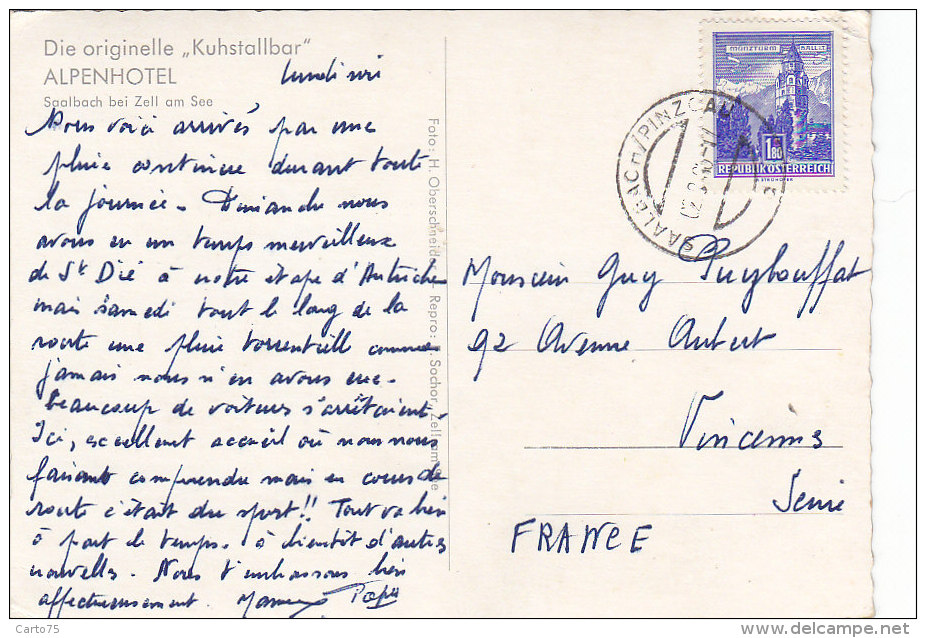 Die originelle „Kuhstallbar"
ALPENHOTEL
Saalbach bei Zell am See
lundi soir
Nous voici arrivés par une
pluie continue durant toute
la journée. Dimanche nous
avons eu un temps merveilleux
de St Dié à notre étape d'Autriche
mais samedi tout le long de la
route une pluie torrentielle comme
jamais nous n'en avons eue.
beaucoup de voitures s'arrêtaient
Ici, excellent accueil où nous nous
faisons comprendre mais en cours de
route c'était du sport!! Tout va bien
à part le temps. à bientôt d'autres
nouvelles. Nous t'embrassons bien
affectueusement. Papa
Foto: H. Oberschneider Repro: Sochor, Zell am See
MÜNZTURM HALL I.T.
1.80
REPUBLIK ÖSTERREICH
SAALBACH/PINZGAU
Monsieur Guy Puybouffat
92 Avenue Aubert
Vincennes
Seine
FRANCE
Carto75
www.delcampe.net